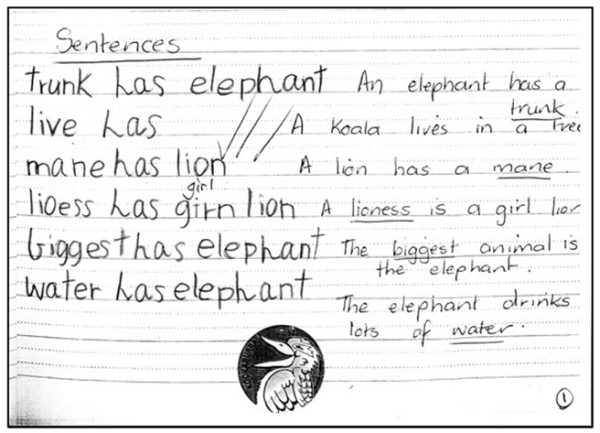 Sentences
trunk has elephant
live has
mane has lion
girl
lioess has girn lion
biggest has elephant
water has elephant
An elephant has a
trunk.
A Koala lives in a tree
A lion has a mane.
A lioness is a girl lion
The biggest animal is
the elephant.
The elephant drinks
lots of water.
1